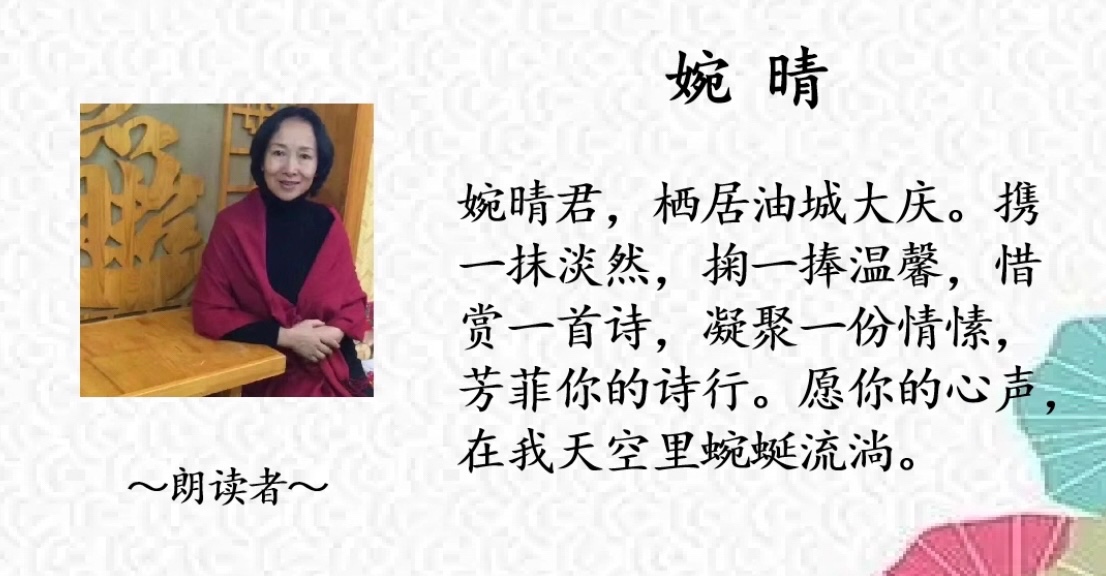 婉 晴
婉晴君，栖居油城大庆。携
一抹淡然，掬一捧温馨，惜
赏一首诗，凝聚一份情愫，
芳菲你的诗行。愿你的心声，
在我天空里蜿蜒流淌。
～朗读者～